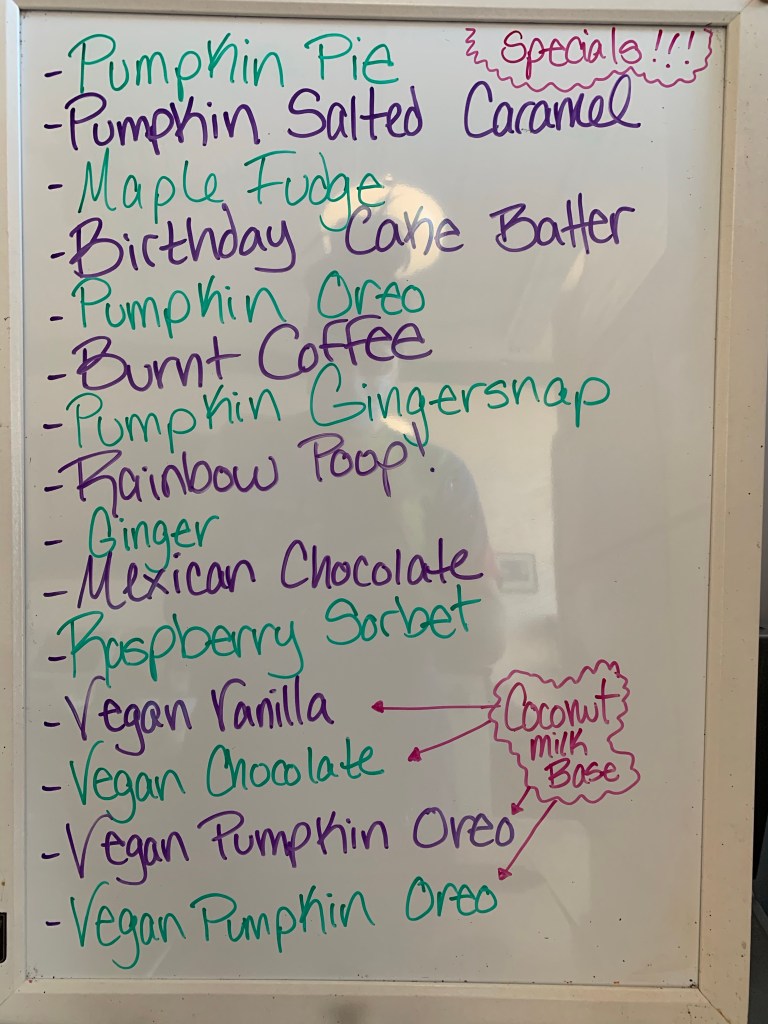 Specials!!!
- Pumpkin Pie
- Pumpkin Salted Caramel
- Maple Fudge
- Birthday Cake Batter
- Pumpkin Oreo
- Burnt Coffee
- Pumpkin Gingersnap
- Rainbow Poop!
- Ginger
- Mexican Chocolate
- Raspberry Sorbet
- Vegan Vanilla
- Vegan Chocolate
- Vegan Pumpkin Oreo
- Vegan Pumpkin Oreo
Coconut
milk
Base